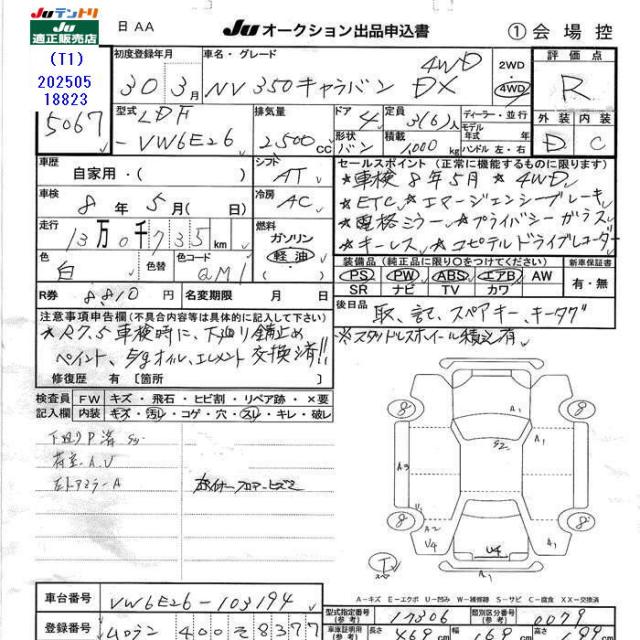 Juテントリ
Ju
適正販売店
(T1)
202505
18823
5067
日 AA
Ju オークション出品申込書
① 会場控
初度登録年月
30年3月
車名・グレード
NV350キャラバン 4WD DX
2WD
4WD
評価点
R
外装 内装
D C
型式
LDF
-VW6E26
排気量
2,500cc
ドア
4
定員
3(6)人
形状
バン
積載
1,000kg
ディーラー・並行
モデル年式 年
ハンドル 左・右
車歴
自家用・( )
シフト
AT
車検
8年5月( 日)
冷房
AC
走行
13万0千735km
燃料
ガソリン
軽油
色
白
色替
色コード
QM1
R券 8,810円
名変期限 月 日
セールスポイント(正常に機能するものに限ります)
★車検8年5月 ★4WD
★ETC ★エマージェンシーブレーキ
★電格ミラー ★プライバシーガラス
★キーレス ★コムテルドライブレコーダー
装備品(純正品に限り○をつけてください)
新車保証書
PS PW ABS エアB AW
SR ナビ TV カワ
有・無
後日品
取、記、スペアキー、キータグ
※スタッドレスホイール積込有
注意事項申告欄(不具合内容等は具体的に記入して下さい)
★R7.5車検時に、下廻り錆止め
ペイント、E/gオイル、エレメント交換済!!
修復歴 有 [箇所
検査員記入欄
FW キズ・飛石・ヒビ割・リペア跡・×要
内装 キズ・汚レ・コゲ・穴・スレ・キレ・破レ
下廻りP済 SS
荷室-A.U
左ドアミラー A
8 8 8 8
A1
A1
S2
A3
A2
U4
U4
T
A1
A-キズ E-エクボ U-凹み W-補修跡 S-サビ C-腐食 XX-交換済
車台番号
VW6E26-103194
登録番号
400 そ 8377
型式指定番号
17306
類別区分番号
0079
車庫証明用(参考)
長さ 469cm
幅 169cm
高さ 199cm